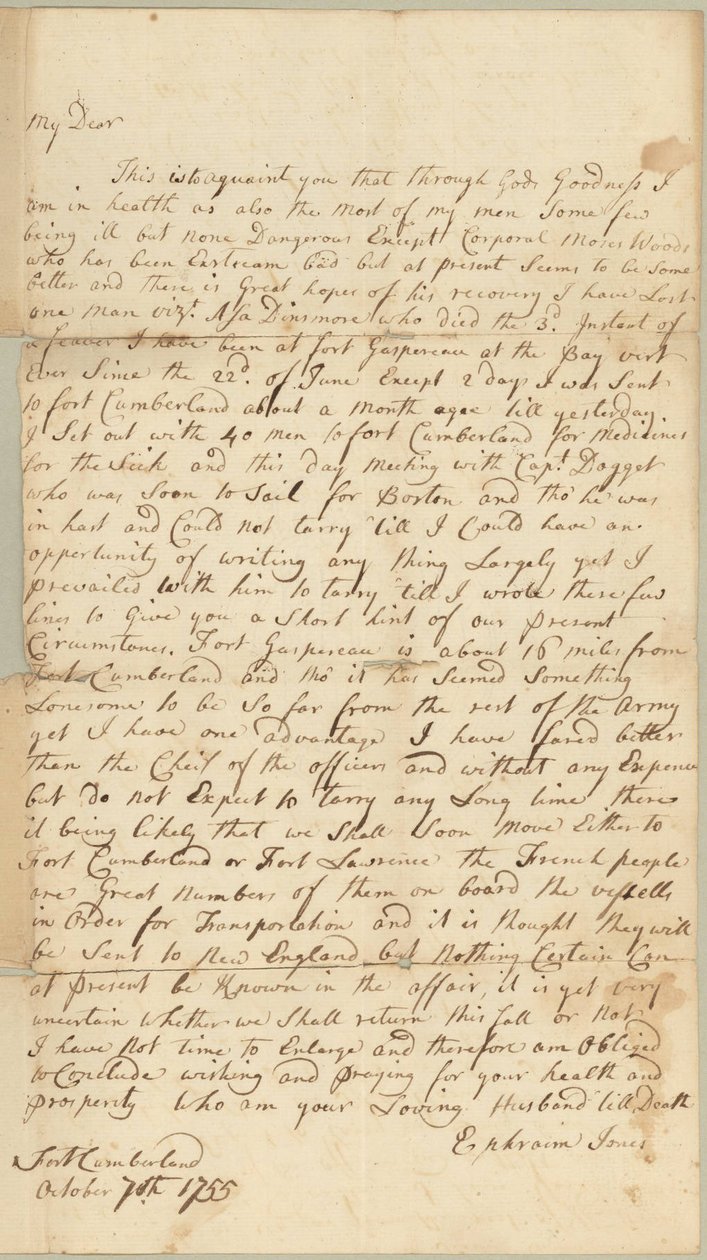 My Dear
This is to aquaint you that through Gods Goodness I
am in health as also the most of my men Some few
being ill but none Dangerous Except Corporal Moses Woods
who has been Extream bad but at present Seems to be Some
better and there is Great hopes of his recovery I have Lost
one man vizt. Asa Dinsmore who died the 3d. Instant of
a feaver I have been at fort Gaspereau at the Bay vert
Ever Since the 22d. of June Except 2 days I was Sent
to fort Cumberland about a month agoe till yesterday
I Set out with 40 men to fort Cumberland for medicines
for the Sick and this day meeting with Capt. Dogget
who was Soon to Sail for Boston and tho he was
in hast and Could not tarry till I Could have an
opportunity of writing any thing Largely yet I
prevailed with him to tarry till I wrote these few
lines to Give you a Short hint of our present
Circumstances. Fort Gaspereau is about 16 miles from
Fort Cumberland and tho it has Seemed Something
Lonesome to be So far from the rest of the Army
yet I have one advantage I have fared better
than the Cheif of the officers and without any Expence
but do not Expect to tarry any Long time there
it being likely that we Shall Soon move Either to
Fort Cumberland or Fort Lawrence the French people
are Great numbers of them on board the vessells
in Order for Transportation and it is thought they will
be Sent to New England but Nothing Certain Can
at present be Known in the affair, it is yet very
uncertain whether we Shall return this fall or Not
I have Not time to Enlarge and therefore am Obliged
to Conclude wishing and praying for your health and
prosperity who am your Loving Husband till Death
Ephraim Jones
Fort Cumberland
October 7th 1755